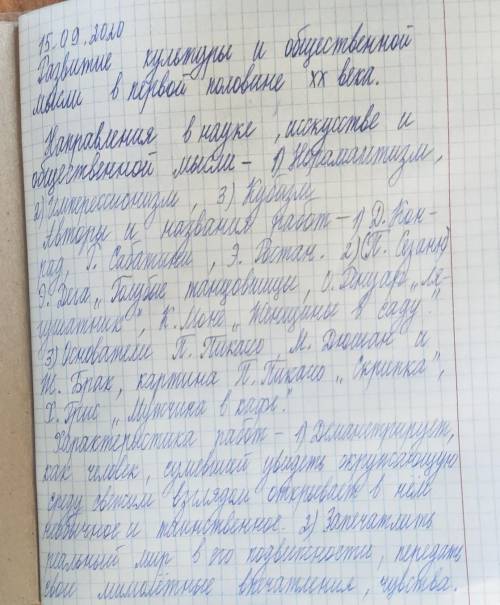 15.09.2020
Развитие культуры и общественной
мысли в первой половине XX века.
Направления в науке, искусстве и
общественной мысли – 1) Неромантизм,
2) Импрессионизм, 3) Кубизм
Авторы и названия работ – 1) Д. Кон-
рад, Г. Сабатини, Э. Ростан. 2) (П. Сезанн)
Э. Дега „Голубые танцовщицы, О. Ренуар „Ля-
гушатник", К. Моне „Женщины в саду".
3) Основатели П. Пикасо, М. Дюшан и
Ж. Брак, картина П. Пикасо „Скрипка",
Х. Грис „Мужчина в кафе".
Характеристика работ – 1) Демонстрирует,
как человек, сумевший увидеть окружающую
среду свежим взглядом открывает в нём
необычное и таинственное. 2) Запечатлить
реальный мир в его подвижности, передать
свои мимолётные впечатления, чувства.